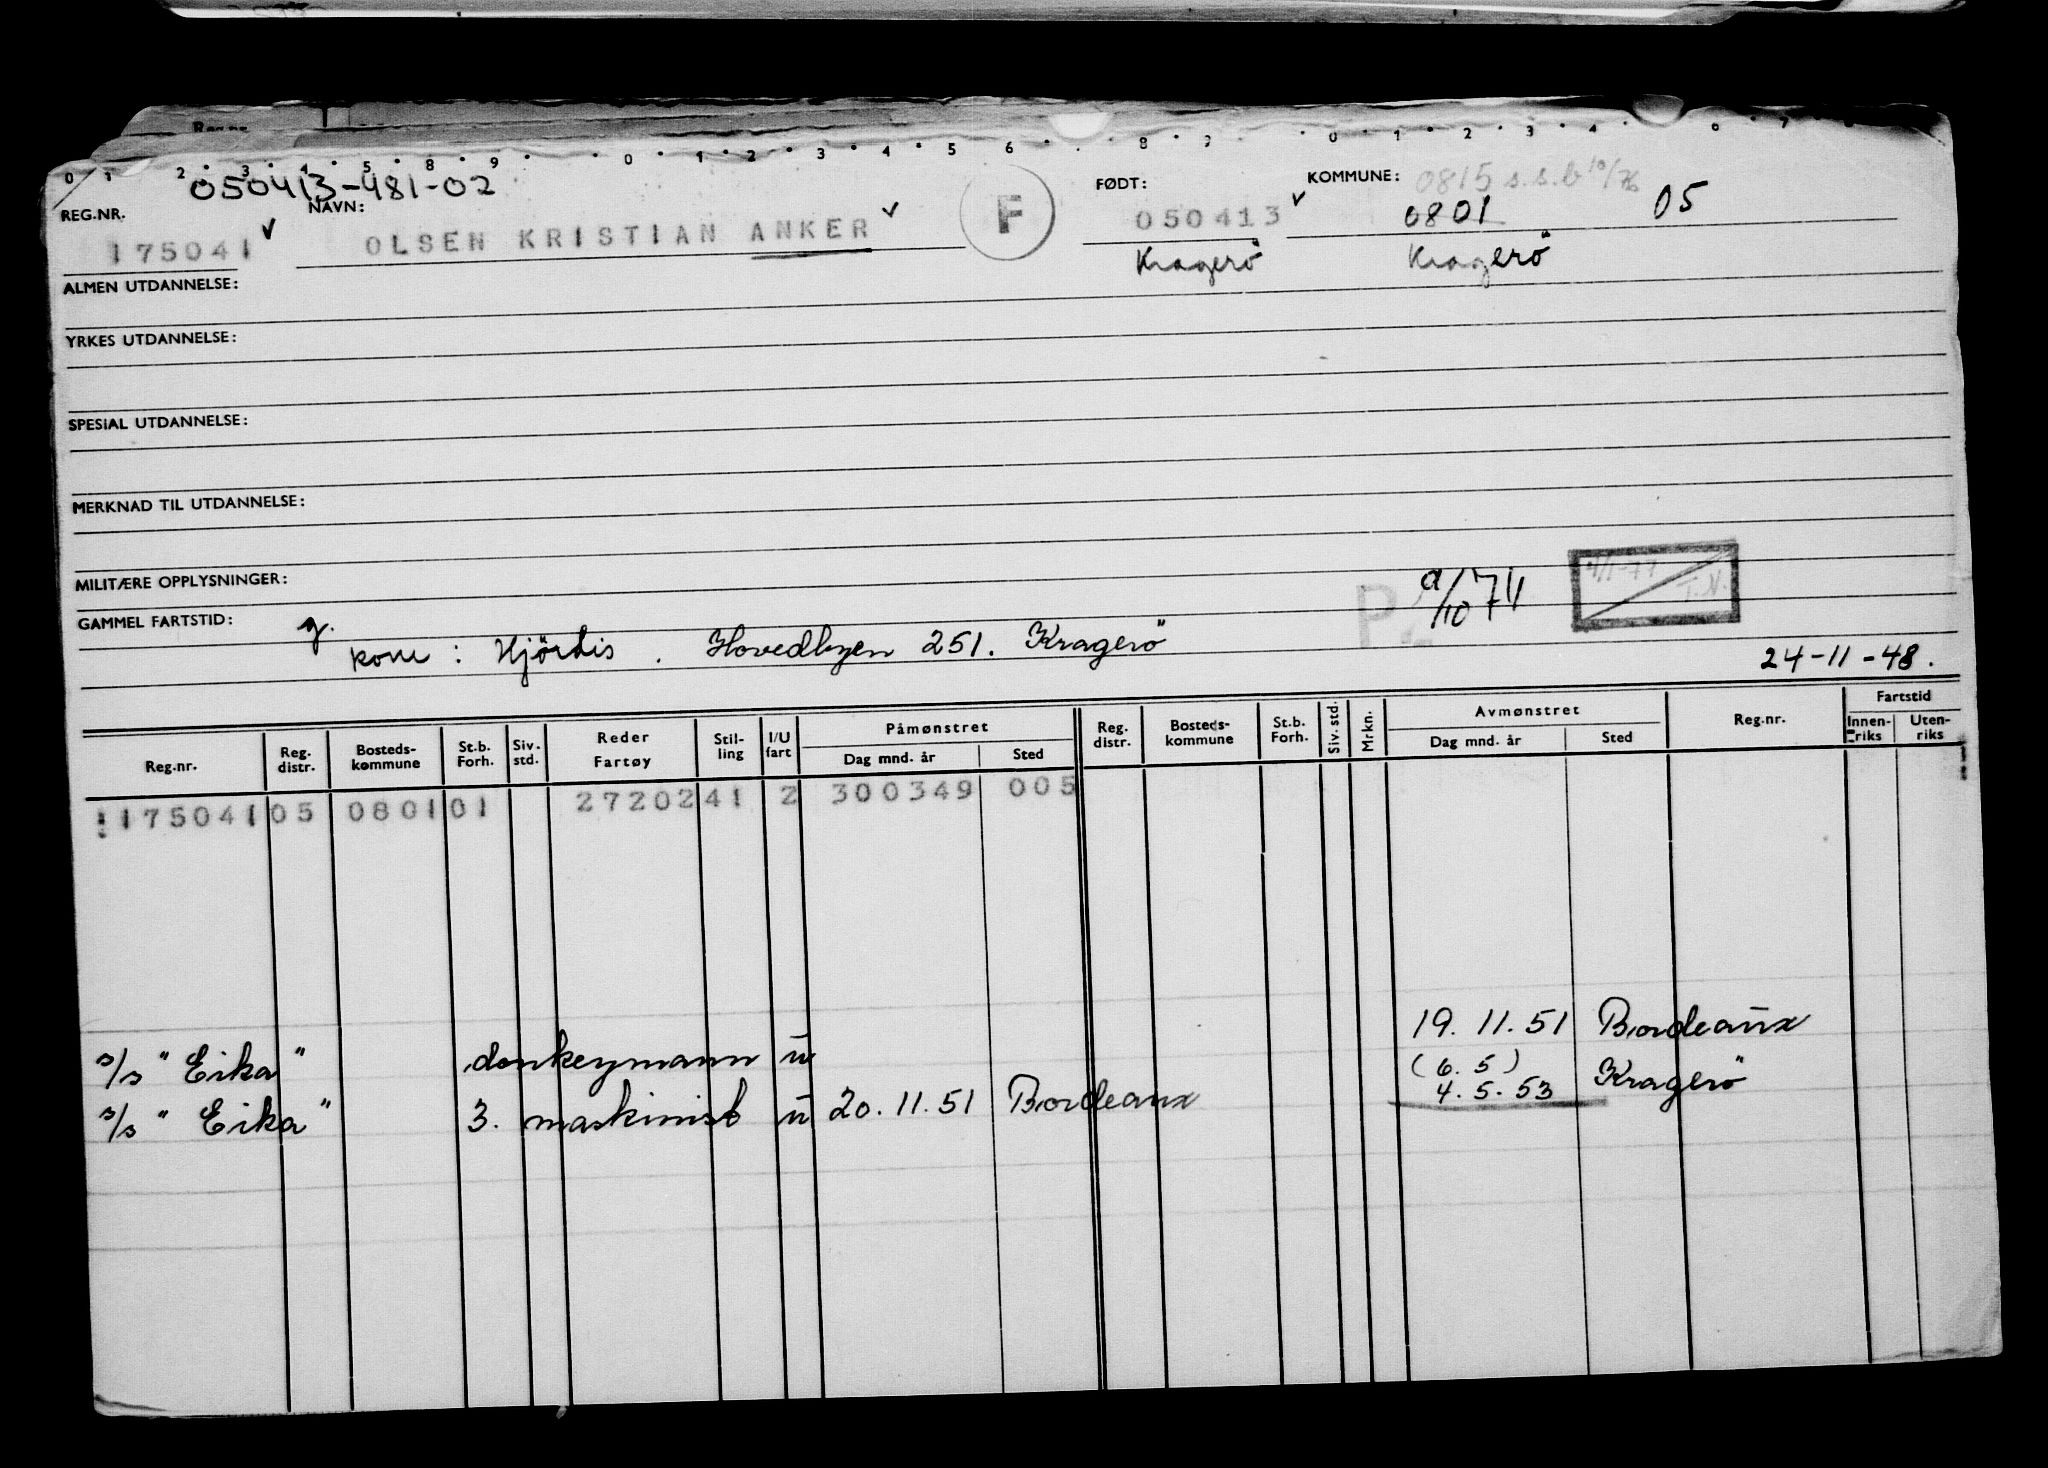 050413-481-02
REG.NR. NAVN: F FØDT: KOMMUNE: 0815 s.s.b 10/76
175041 OLSEN KRISTIAN ANKER 050413 0801 05
Kragerö Kragerö
ALMEN UTDANNELSE:
YRKES UTDANNELSE:
SPESIAL UTDANNELSE:
MERKNAD TIL UTDANNELSE:
MILITÆRE OPPLYSNINGER:
GAMMEL FARTSTID: g.
kone: Hjördis. Hovedbyen 251. Kragerö
24-11-48.
Reg.nr. Reg. distr. Bosteds-kommune St.b. Forh. Siv. std. Reder Fartøy Stil-ling I/U fart Påmønstret Dag mnd. år Sted Reg. distr. Bosteds-kommune St.b. Forh. Siv. std. Mrkn. Avmønstret Dag mnd. år Sted Reg.nr. Fartstid Innen-riks Uten-riks
175041 05 0801 01 27202 41 2 300349 005
s/s "Eika" donkeymann u 19.11.51 Bordeaux
(6.5)
s/s "Eika" 3. maskinist u 20.11.51 Bordeaux 4.5.53 Kragerö